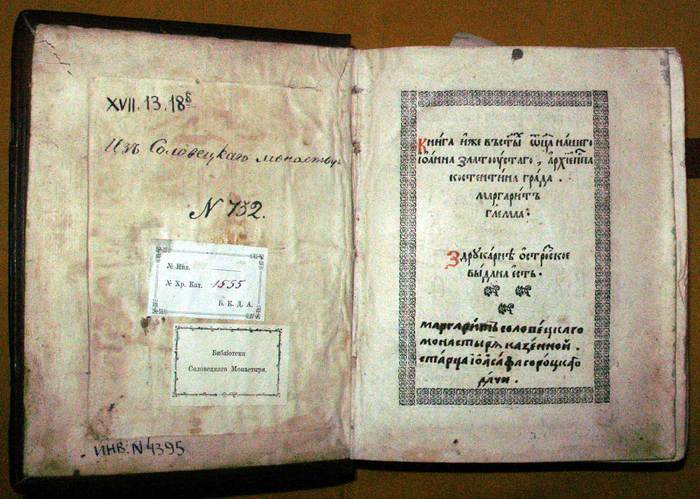 XVII.13.18б
Изъ Соловецкаго монастыр
N 732.
№ Инв.
№ Хр. Кат. 1555
Б. К. Д. А.
Библіотека
Соловецкаго Монастыря.
ИНВ. N 4395
Книга иже въ ст҃ы ѿца нашего
іоанна златоустаго, архіеп҃па
костентина града.
маргаритъ
гл҃емаа:
Здрукарнѣ острозское
выдана естъ.
маргаритъ соловецкаго
монастыря казенной.
старца іоасафа сороцкаго
дачи.